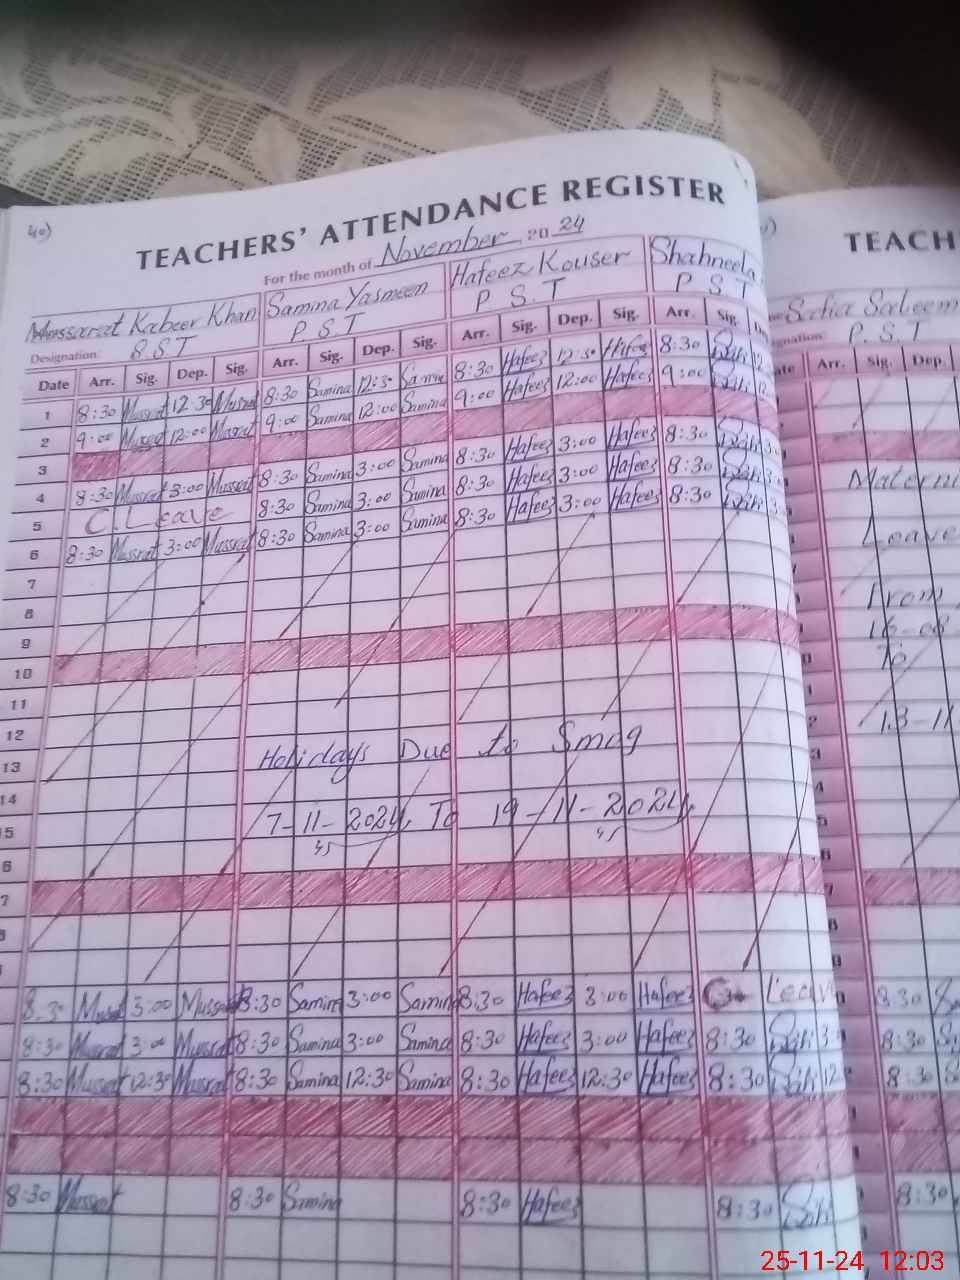 40)
TEACHERS' ATTENDANCE REGISTER
For the month of November 2024
Mussarat Kabeer Khan Samina Yasmeen Hafeez Kouser Shahneela
Designation: P.S.T P.S.T P.S.T
Date Arr. Sig. Dep. Sig. Arr. Sig. Dep. Sig. Arr. Sig. Dep. Sig. Arr. Sig.
1 8:30 Mussrat 12:30 Mussrat 8:30 Samina 12:30 Samina 8:30 Hafeez 12:30 Hafeez 8:30
2 9:00 Mussrat 12:00 Mussrat 9:00 Samina 12:00 Samina 9:00 Hafeez 12:00 Hafeez 9:00
3
4 8:30 Mussrat 3:00 Mussrat 8:30 Samina 3:00 Samina 8:30 Hafeez 3:00 Hafeez 8:30
5 C. Leave 8:30 Samina 3:00 Samina 8:30 Hafeez 3:00 Hafeez 8:30
6 8:30 Mussrat 3:00 Mussrat 8:30 Samina 3:00 Samina 8:30 Hafeez 3:00 Hafeez 8:30
7
8
9
10
11
12
13
14
15
Holidays Due to Smog
7-11-2024 To 19-11-2024
8:30 Mussrat 3:00 Mussrat 8:30 Samina 3:00 Samina 8:30 Hafeez 3:00 Hafeez Leave
8:30 Mussrat 3:00 Mussrat 8:30 Samina 3:00 Samina 8:30 Hafeez 3:00 Hafeez 8:30
8:30 Mussrat 12:30 Mussrat 8:30 Samina 12:30 Samina 8:30 Hafeez 12:30 Hafeez 8:30
8:30 Mussrat 8:30 Samina 8:30 Hafeez 8:30
TEACH
Safia Saleem
P.S.T
Arr. Sig. Dep.
Materni
Leave
From
16-08
To
13-11
8:30
8:30
8:30
8:30
25-11-24 12:03